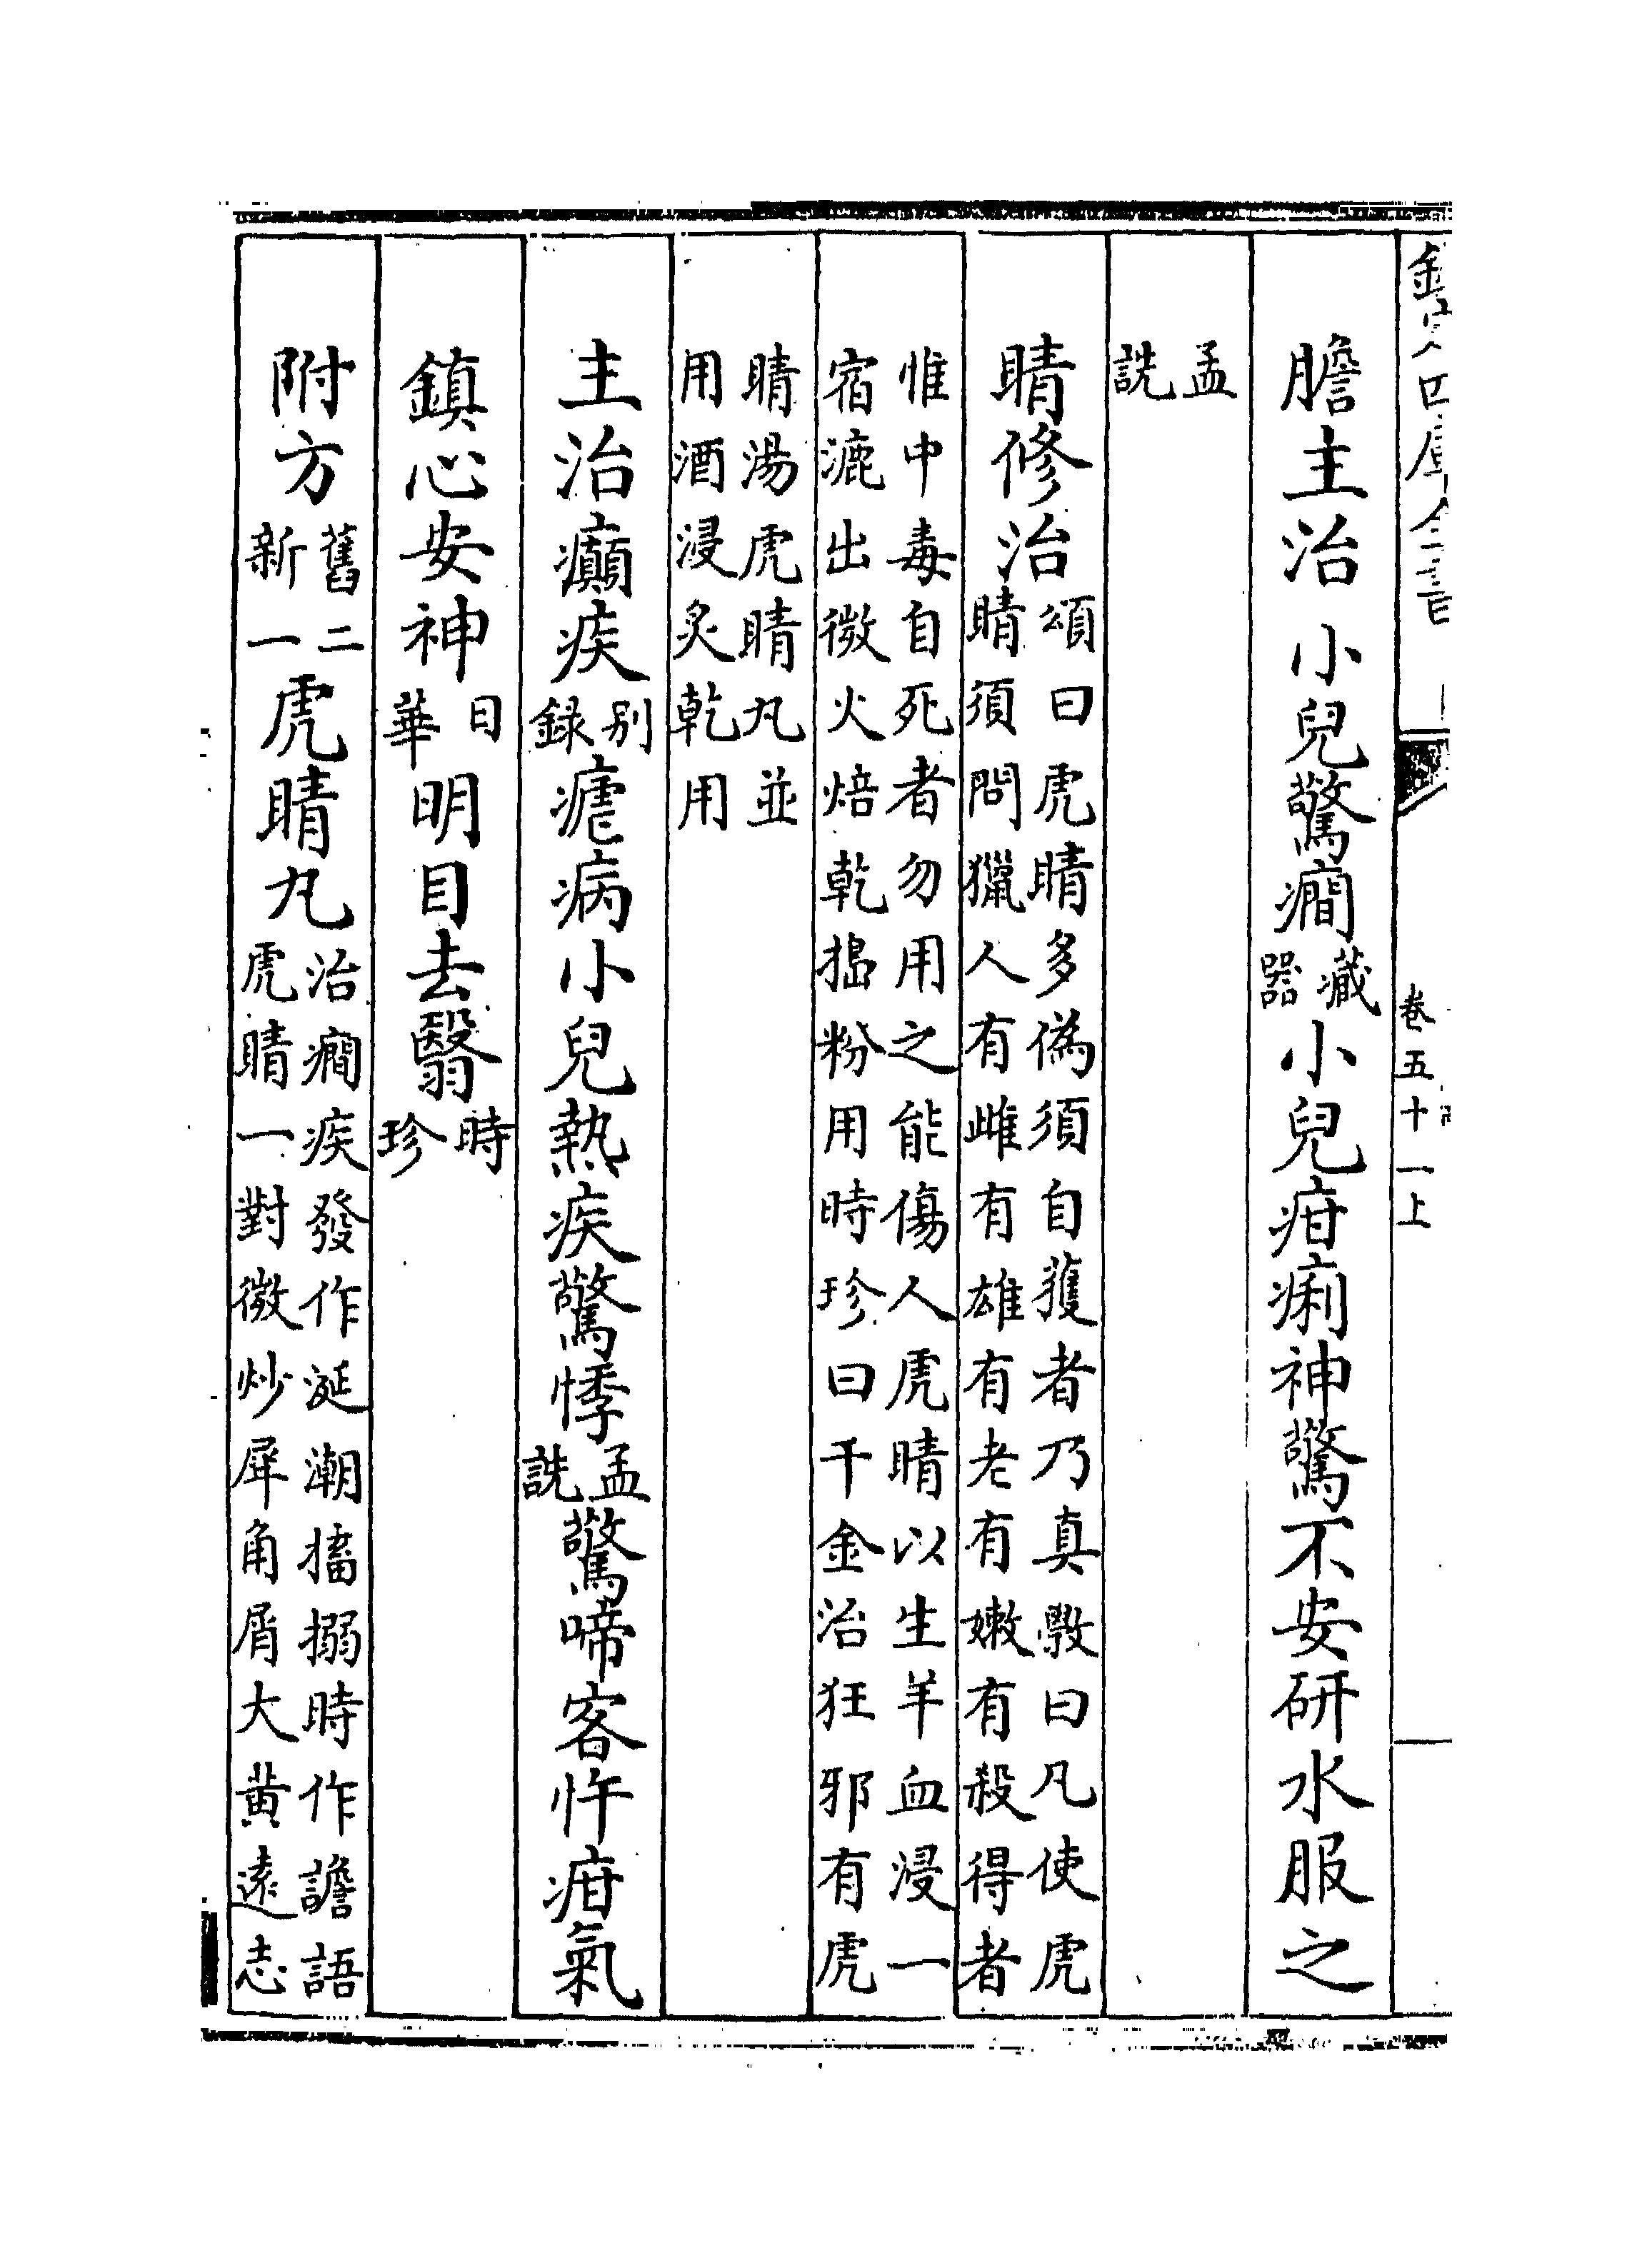 欽定四庫全書
卷五十一上
膽主治小兒驚癇藏器小兒疳痢神驚不安研水服之
孟詵
睛修治頌曰虎睛多偽須自獲者乃真斆曰凡使虎睛須問獵人有雌有雄有老有嫩有殺得者
惟中毒自死者勿用之能傷人虎睛以生羊血浸一宿漉出微火焙乾搗粉用時珍曰千金治狂邪有虎
睛湯虎睛丸並用酒浸炙乾用
主治癲疾别録瘧病小兒熱疾驚悸孟詵驚啼客忤疳氣
鎮心安神日華明目去翳時珍
附方舊二新一虎睛丸治癇疾發作涎潮搐搦時作譫語虎睛一對微炒犀角屑大黄遠志